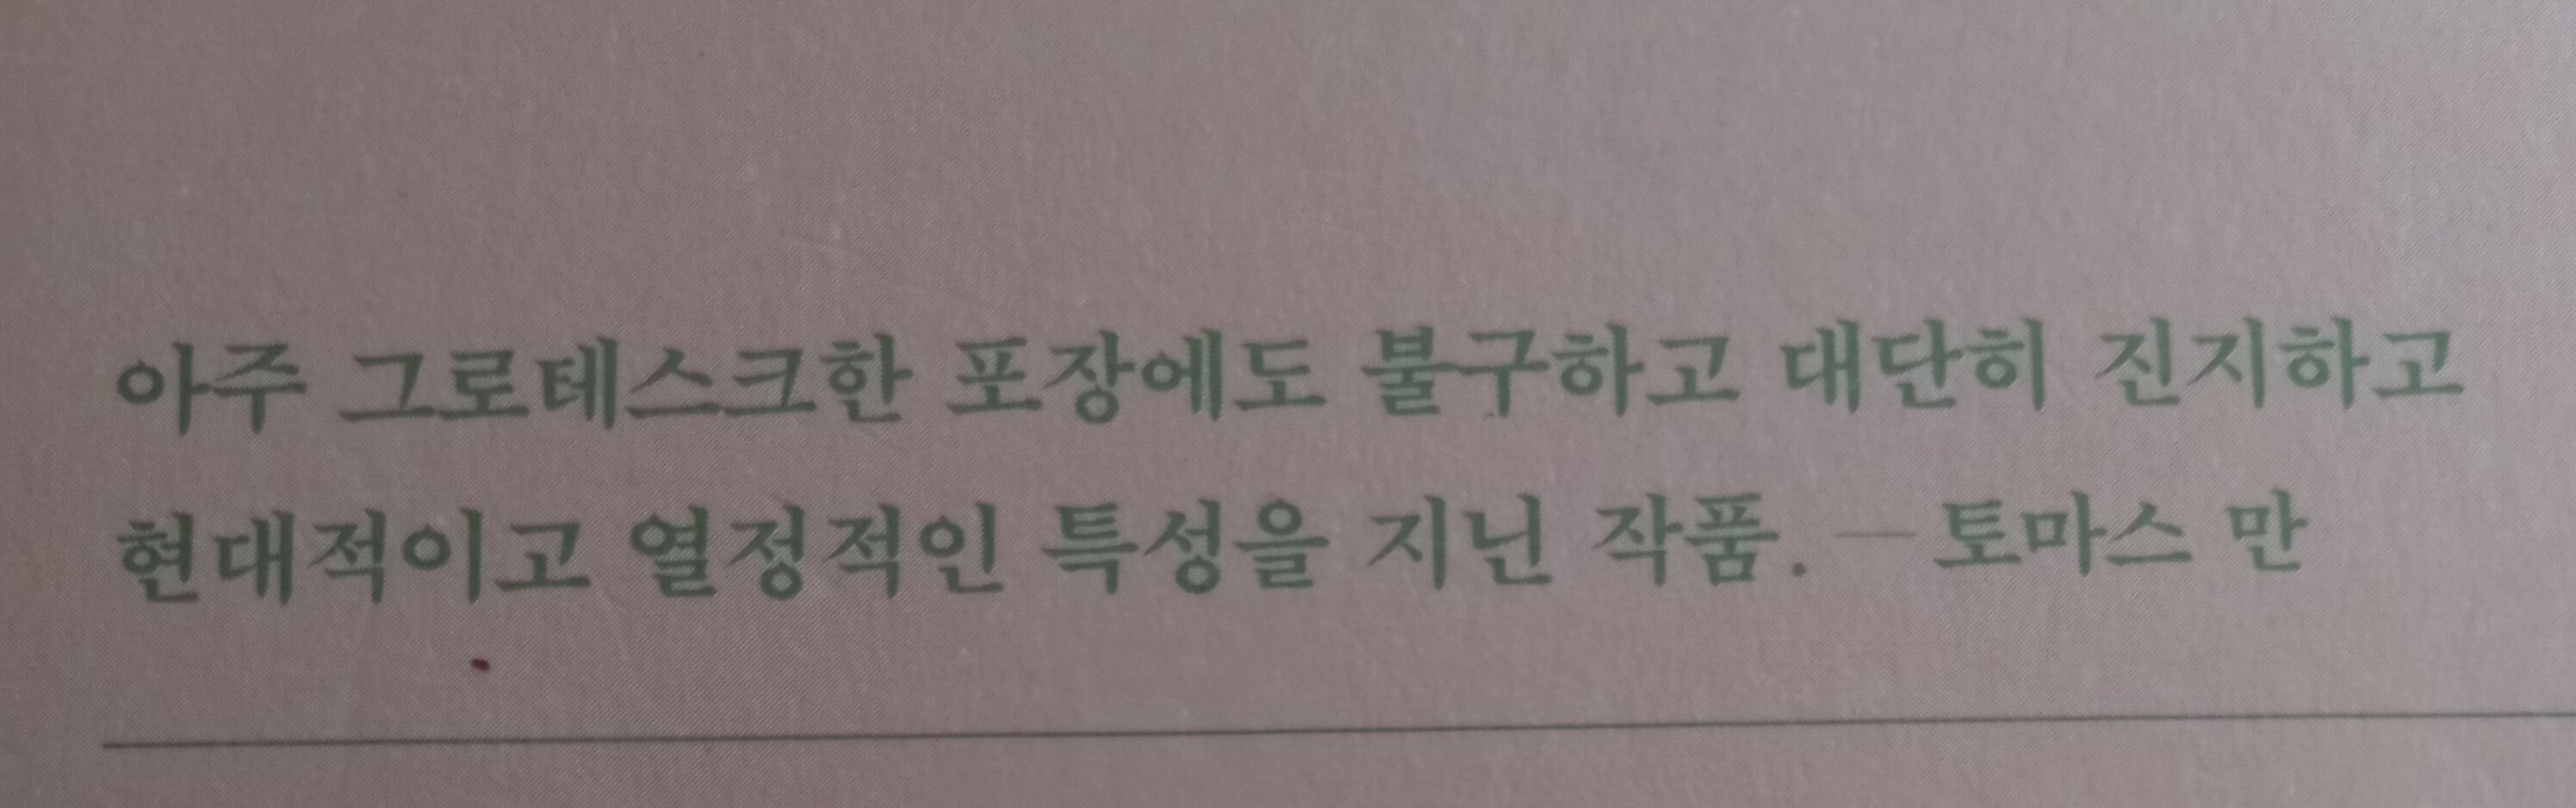 아주 그로테스크한 포장에도 불구하고 대단히 진지하고
현대적이고 열정적인 특성을 지닌 작품. ─ 토마스 만